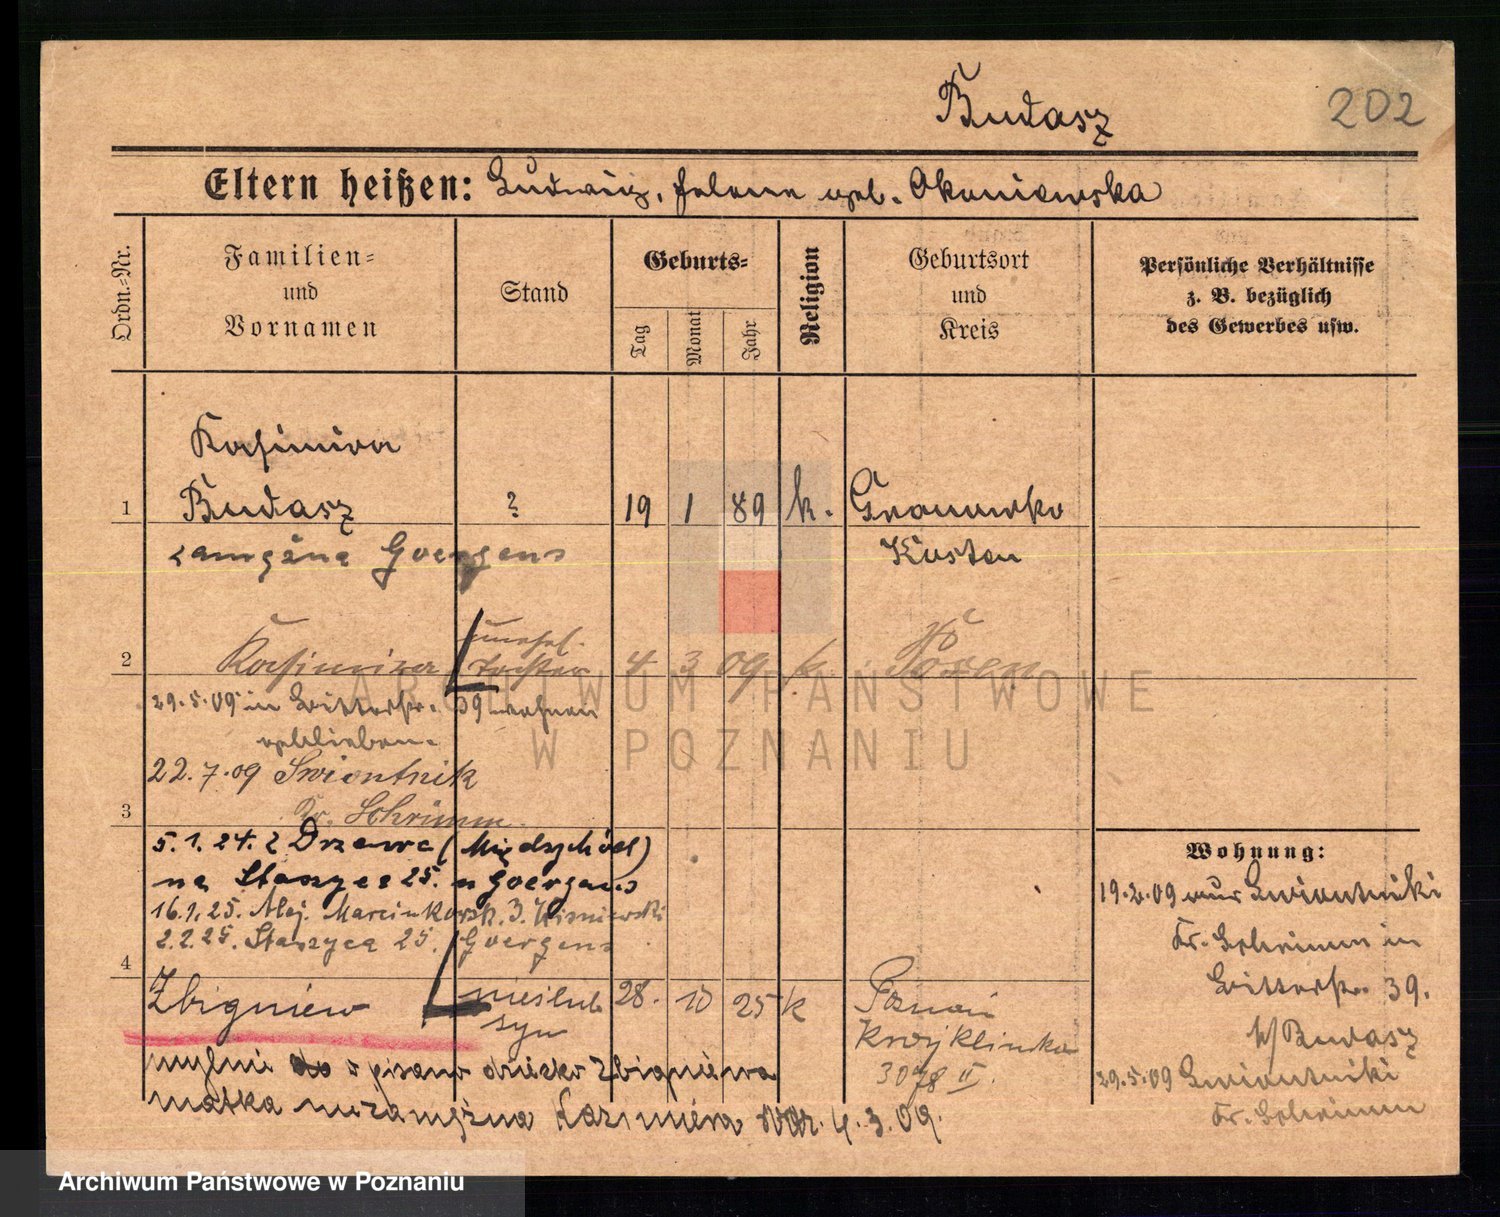 Budasz
202
Eltern heißen: Ludwig, Helene geb. Okoniewska
Ordn.-Nr.
Familien-
und
Vornamen
Stand
Geburts-
Tag
Monat
Jahr
Religion
Geburtsort
und
Kreis
Persönliche Verhältnisse
z. B. bezüglich
des Gewerbes usw.
Kasimira
1 Budasz ? 19 1 89 k. Granowko
zamężna Goergens Kosten
2 Kasimira unehel. Tochter 4 3 09 k Posen
29.5.09 in Bitterstr. 39 wohnen
geblieben.
22.7.09 Swiontnik
3 Kr. Schrimm.
5.1.24. z Drzewce (Międzychód)
na Staszyca 25. u Goergens
16.1.25. Alej. Marcinkowsk. 3. Wisniewski
2.2.25. Staszyca 25. Goergens
4
Zbigniew nieślub syn 28. 10 25 k Poznań
3078 II.
mylnie do pisano dziecko Zbigniewa
matka niezamężna Kazimiera 4.3.09.
Wohnung:
19.2.09 aus Swiontniki
Kr. Schrimm in
Bitterstr. 39.
b/ Budasz
29.5.09 Swiontniki
Kr. Schrimm
ARCHIWUM PAŃSTWOWE
W POZNANIU
Archiwum Państwowe w Poznaniu